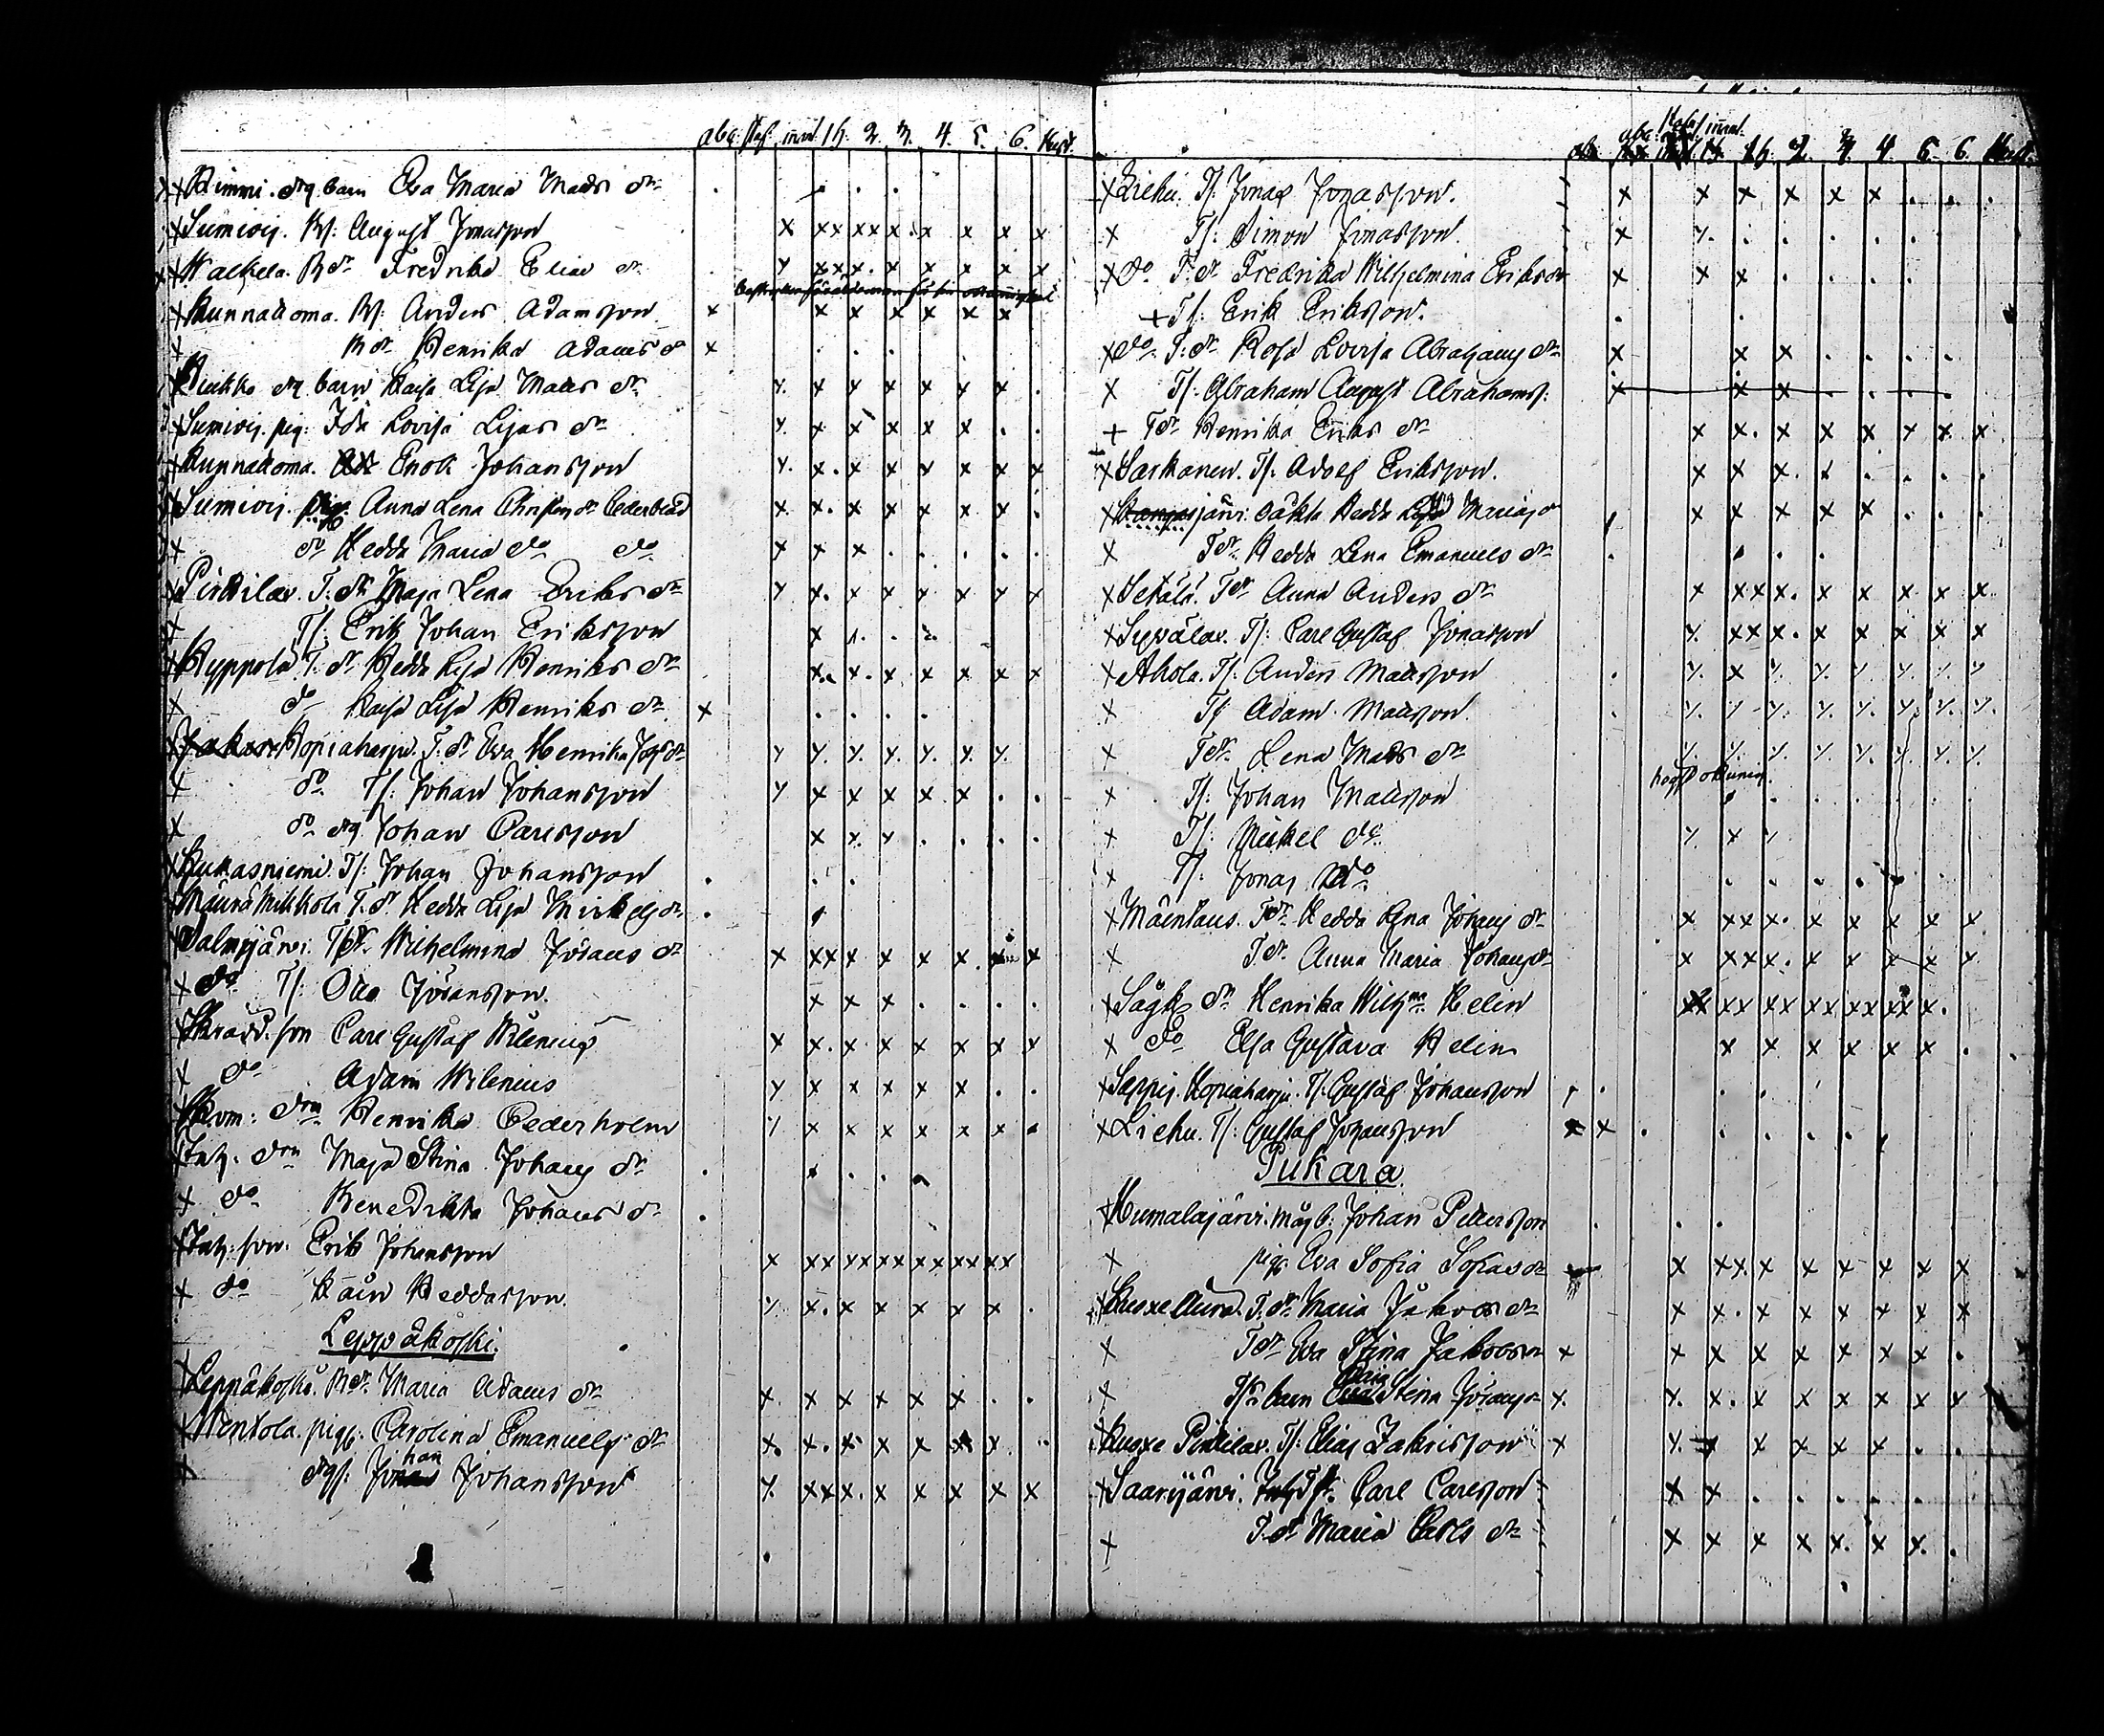 abc. Staf. innat. 1h. 2. 3. 4. 5. 6. Husd.
Rimmi. drg barn Eva Maria Mads dr
Sumiois. Bs: August Jonasson
Walkela. B dr Fredrika Elias dr
Kunnakoma. Bs: Anders Adamsson
B dr Henrika Adams dr
drg barn Kaisa Lisa Matts dr
Sumiois. pig: Ida Lovisa Lisas dr
Kunnakoma. Enok Johansson
Sumiois. pig. Anna Lena Christens dr
do Hedda Maria do do
Pirkilax. T. dr Maja Lena Eriks dr
Ts: Erik Johan Eriksson
Hyppölä T. dr Hedda Lisa Henriks dr
do Kaisa Lisa Henriks dr
Kopiaharju. T. dr Eva Henrika
do Ts: Johan Johansson
do drg Johan Carlsson
Kukasniemi. Ts: Johan Johansson
T. dr Hedda Lisa Mickels dr
Salmijärvi. T dr Wilhelmina Görans dr
do Ts: Otto Göransson.
Skrädd. son Carl Gustaf Wilenius
do Adam Wilenius
Henrika Cederholm
Inh. Maja Stina Johans dr
do Benedikta Johans dr
Inh: son: Erik Johansson
do Heddasson.
Leppäkoski.
Leppäkoski. B dr Maria Adams dr
Wentola. pig: Carolina Emanuels dr
drgs: Johan Johansson
abc. Staf. innat.
1h 2. 3. 4. 5. 6. Husd.
Liehu. Ts: Jonas Jonasson.
Ts: Simon Jonasson.
do T. dr Fredrika Wilhelmina Eriks dr
Ts: Erik Eriksson.
do T. dr Rosa Lovisa Abrahams dr
Ts: Abraham August Abrahams:
T dr Henrika Eriks dr
Sarkanen. Ts: Adolf Eriksson.
järvi. Hedda
T dr Hedda Lena Emanuels dr
Setälä. T dr Anna Anders dr
Sypälax. Ts: Carl Gustaf Jonasson
Ahola. Ts: Anders Mattsson
Ts Adam Mattsson.
T dr Lena Mats dr
Ts: Johan Mattsson
högst okunnig.
Ts: Mickel do
Ts: Jonas do
Mäentaus. T dr Hedda Lena Johans dr
T. dr Anna Maria Johans dr
Sågk dr Henrika Wilhma Helin
do Elsa Gustava Helin
Kopiaharju. Ts: Gustaf Johansson
Liehu. Ts: Gustaf Johansson
Pukara.
Humalajärvi. Måg b: Johan Pettersson
piga Eva Sofia Sofias dr
Kuoxe Aura. T. dr Maria Jakobs dr
T dr Eva Stina Jakobs dr
barn Stina Görans dr
Kuoxe Ts: Elias Zakrisson
Saarijärvi. Carl Carlsson
T. dr Maria Carls dr